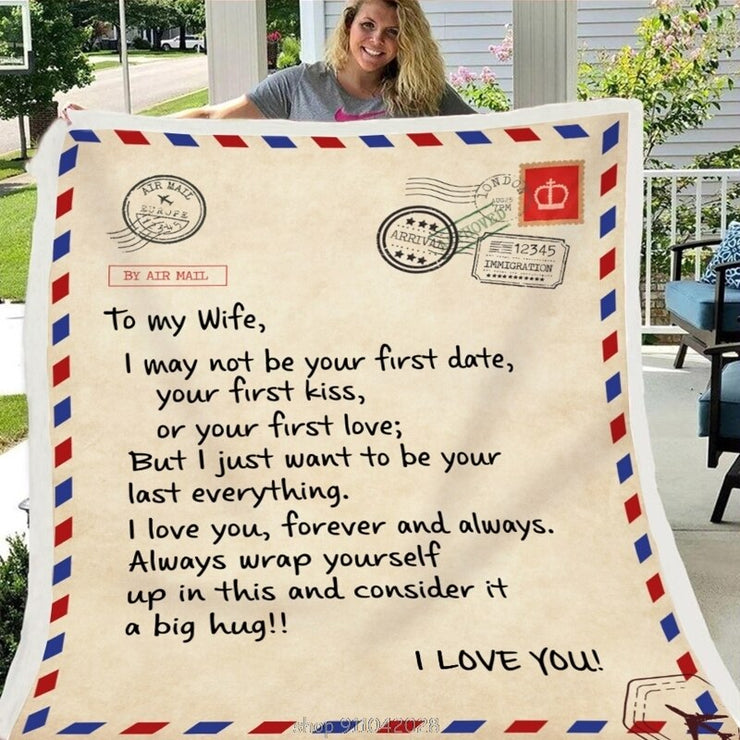 AIR MAIL
EUROPE
BY AIR MAIL
LONDO
7PM
ARRIVA
12345
IMMIGRATION
To my Wife,
I may not be your first date,
your first kiss,
or your first love;
But I just want to be your
last everything.
I love you, forever and always.
Always wrap yourself
up in this and consider it
a big hug!!
I LOVE YOU!